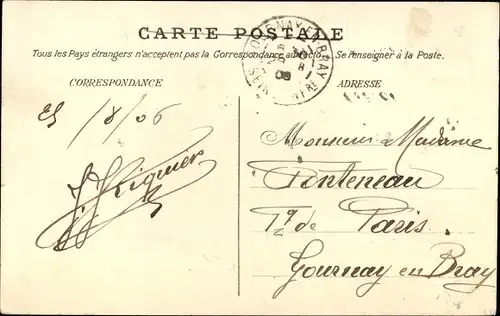 CARTE POSTALE
Tous les Pays étrangers n'acceptent pas la Correspondance au recto. Se renseigner à la Poste.
CORRESPONDANCE
ADRESSE
GOURNAY-EN-BRAY
SEINE INFRE
08
/8/06
Monsieur Madame
Fonteneau
de Paris
Gournay en Bray